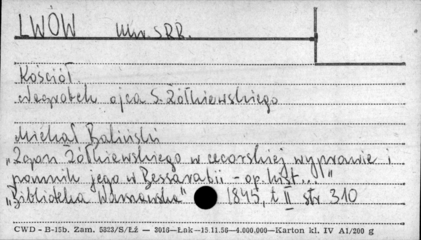 LWÓW Ukr. SRR.
Kościół
Nagrobek ojca S. Żółkiewskiego
Michał Baliński
„Zgon Żółkiewskiego w cecorskiej wyprawie i
pomnik jego w Bessarabii - op. hist..."
„Biblioteka Warszawska" 1845, t II str 310
CWD - B-15b. Zam. 5323/S/Łż — 3016—Łak—15.11.58—4.000.000—Karton kl. IV A1/200 g